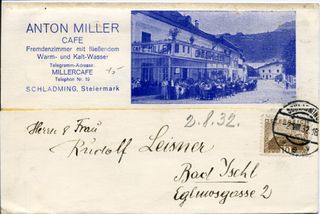 ANTON MILLER
CAFE
Fremdenzimmer mit fließendem
Warm- und Kalt-Wasser
Telegramm-Adresse:
MILLERCAFE
Telephon Nr. 19
SCHLADMING, Steiermark
2.8.32.
Herrn & Frau
Rudolf Leisner
Bad Ischl
Eglmoosgasse 2